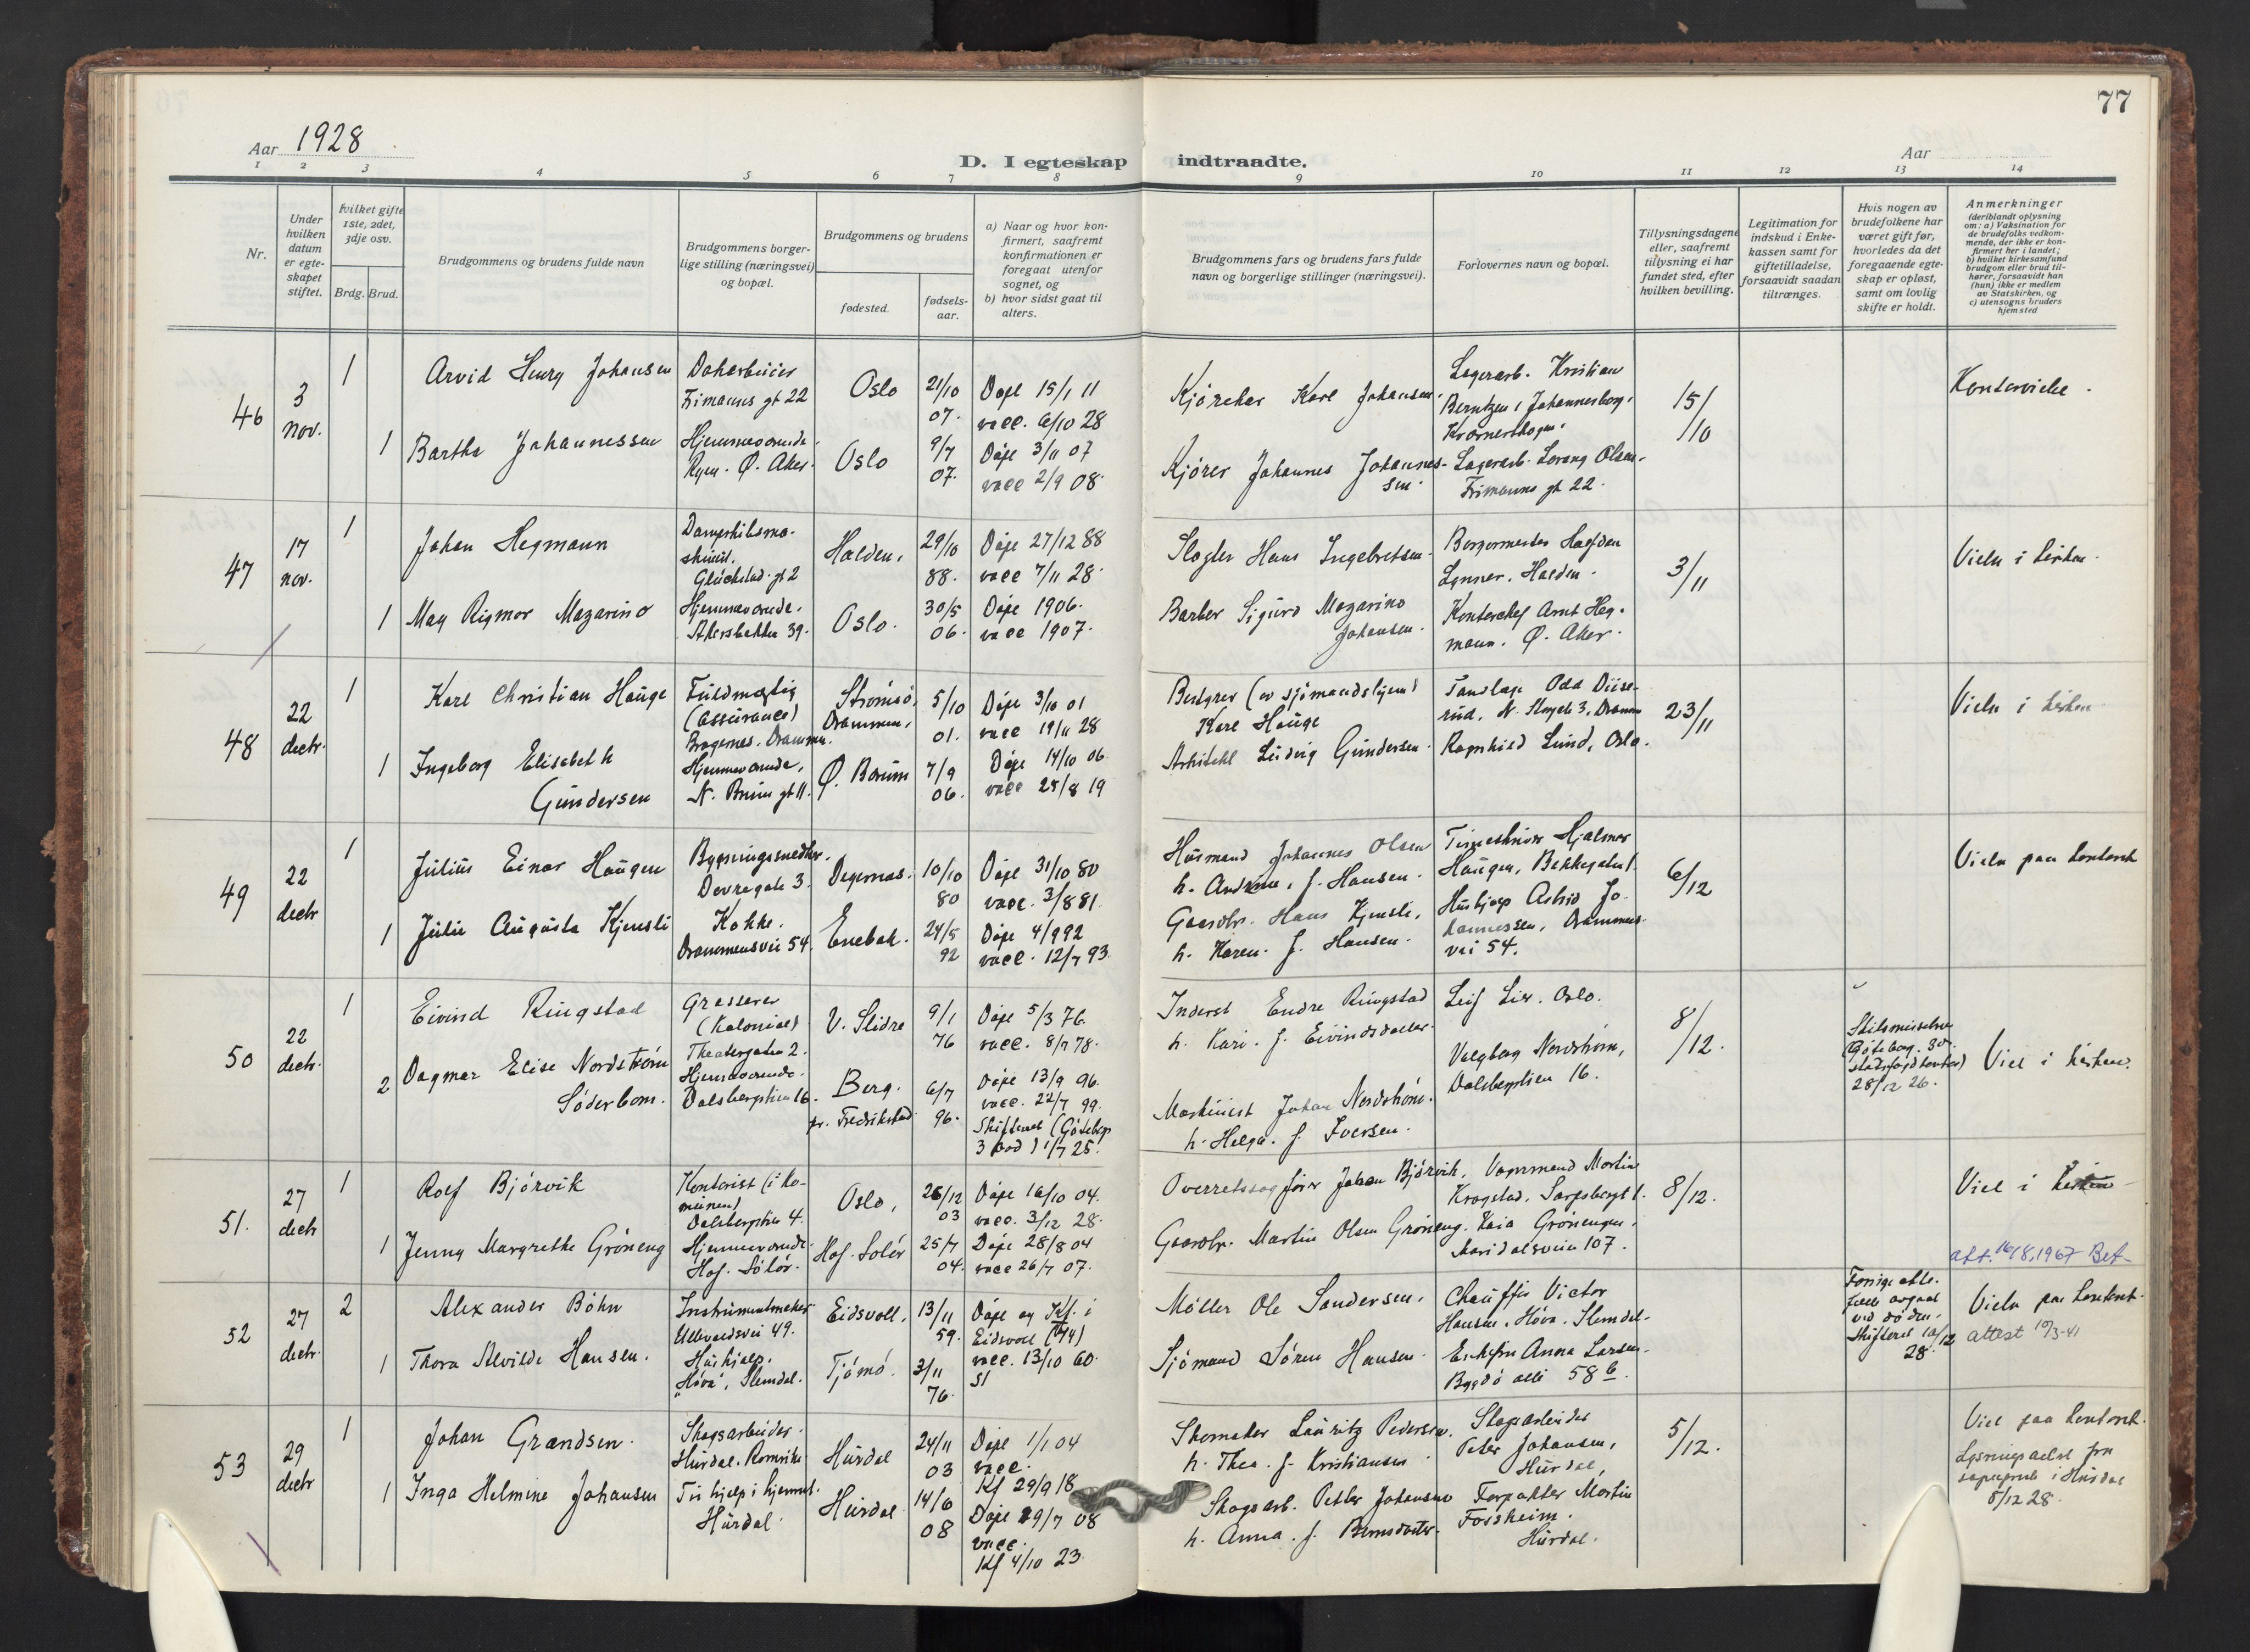 77
Aar 1928
D. I egteskap indtraadte.
Aar
1 2 3 4 5 6 7 8 9 10 11 12 13 14
Nr.
Under
hvilken
datum
er egte-
skapet
stiftet.
hvilket gifte
1ste, 2det,
3dje osv.
Brdg. Brud.
Brudgommens og brudens fulde navn
Brudgommens borger-
lige stilling (næringsvei)
og bopæl.
Brudgommens og brudens
fødested.
fødsels-
aar.
a) Naar og hvor kon-
firmert, saafremt
konfirmationen er
foregaat utenfor
sognet, og
b) hvor sidst gaat til
alters.
Brudgommens fars og brudens fars fulde
navn og borgerlige stillinger (næringsvei).
Forlovernes navn og bopæl.
Tillysningsdagene
eller, saafremt
tillysning ei har
fundet sted, efter
hvilken bevilling.
Legitimation for
indskud i Enke-
kassen samt for
giftetilladelse,
forsaavidt saadan
tiltrænges.
Hvis nogen av
brudefolkene har
været gift før,
hvorledes da det
foregaaende egte-
skap er opløst,
samt om lovlig
skifte er holdt.
Anmerkninger
(deriblandt oplysning
om: a) Vaksination for
de brudefolks vedkom-
mende, der ikke er kon-
firmert her i landet;
b) hvilket kirkesamfund
brudgom eller brud til-
hører, forsaavidt han
(hun) ikke er medlem
av Statskirken, og
c) utensogns bruders
hjemsted
46
3
nov.
1
Arvid Henry Johansen
Frimanns gt 22
Oslo
21/10
07.
Døpt 15/1 11
vacc. 6/10 28
Kjørekar Karl Johansen.
Lagerarb. Kristian
Berntzen, Johannesborg,
15/
/10
1
Bartha Johannessen
Hjemmeværende.
Ryen. Ø. Aker.
Oslo
9/7
07.
Døpt 3/11 07
vacc 2/9 08.
Kjører Johannes Johannes-
sen.
Lagerarb. Lorang Olsen.
Frimanns gt 22.
47
17
nov.
1
Johan Hegmann
Dampskibsma-
skinist.
Glückstad. gt 2
Halden.
29/10
88.
Døpt 27/12 88
vacc 7/11 28.
Slagter Hans Ingebretsen.
Borgermester Halfdan
Lynner. Halden.
3/11
Viet i kirken.
1
May Rigmor Mazarino
Hjemmeværende.
Akersbakken 39.
Oslo.
30/5
06.
Døpt 1906.
vacc 1907.
Barber Sigurd Mazarino
Johansen.
Kontorchef Arnt Heg-
mann. Ø. Aker.
48
22
decbr.
1
Karl Christian Hauge
Fuldmægtig
(assurance)
Bragernes. Drammen.
Strømsø,
Drammen.
5/10
01.
Døpt 3/10 01
vacc 19/11 28
Bestyrer (av sjømandshjem)
Karl Hauge
Tandlæge Odd
23/11
Viet i kirken
1
Ingeborg Elisabeth
Gundersen
Hjemmeværende,
N. Bruns gt 11.
Ø. Bærum
7/9
06.
Døpt 14/10 06
vacc 25/8 19
Arkitekt Ludvig Gundersen.
Ragnhild Lund, Oslo.
49
22
decbr
1
Julius Einar Haugen
Bygningssnedker.
Dovregate 3.
Degernes.
10/10
80
Døpt 31/10 80
vacc. 3/8 81.
Husmand Johannes Olsen
h. Andrine, f. Hansen.
Haugen, Bekkegaten 1.
6/12
Viet paa kontoret
1
Julie Augusta Kjensli
Kokke.
Drammensvei 54.
Enebak.
24/5
92
Døpt 4/9 92
vacc. 12/7 93.
Gaardbr. Hans Kjensli,
h. Karen. f. Hansen.
Hushjelp Astrid Jo-
hannessen, Drammens-
vei 54.
50
22
decbr.
1
Eivind Ringstad
Grosserer
(Kolonial)
Theatergaten 2.
V. Slidre
9/1
76
Døpt 5/3 76.
vacc. 8/7 78.
Inderst Endre Ringstad
h. Kari. f. Eivindsdatter.
Leif Lier. Oslo.
8/
/12.
28/12 26.
Viet i kirken.
2
Dagmar Elise Nordstrøm
Søderbom.
Hjemmeværende.
Dalsbergstien 16.
Berg.
pr. Fredrikstad
6/7
96.
Døpt 13/9 96.
vacc. 22/7 99.
Skifteret (Göteborg
1/7 25.
Maskinist Johan Nordstrøm.
h. Helga. f. Iversen.
Valborg Nordstrøm,
Dalsbergstien 16.
51.
27
decbr
1
Rolf Bjørvik
Kontorist (i ko-
munen)
Dalsbergstien 4.
Oslo,
26/12
03
Døpt 16/10 04.
vacc. 3/12 28.
Overretssagfører Johan Bjørvik.
Martin
Krogstad. Sarpsborg
8/12.
Viet i kirken
1
Jenny Margrethe Grøneng
Hjemmeværende
Hof. Solør.
Hof. Solør
25/7
04.
Døpt 28/8 04
vacc 26/7 07.
Gaardbr. Martin Olsen Grøneng.
Kaia Grønengen,
Maridalsveien 107.
att. 16/8. 1967 Bet
52
27
decbr.
2
Alexander Bøhn
Instrumentmaker
Ullevaalsvei 49.
Eidsvoll.
13/11
59.
Døpt og Kf. i
Eidsvoll (74)
vacc. 13/10 60.
Møller Ole Sandersen.
Chauffør Victor
Hansen. Høva. Slemdal.
ved døden.
Skifteret 10/12
28.
Viet paa kontoret.
attest 10/3-41
1
Thora Alvilde Hansen.
Hushjelp.
"Høva", Slemdal.
Tjømø.
3/11
76.
Sjømand Søren Hansen
Enkefru Anna Larsen.
Bygdø alle 58 b.
53
29
decbr
1
Johan Grandsen.
Skogsarbeider.
Hurdal. Romerike
Hurdal
24/11
03
Døpt 1/1 04
vacc.
Kf 29/9 18
Skomaker Lauritz Pedersen.
h. Thea. f. Kristiansen
Skogsarbeider
Peter Johansen,
Hurdal,
5/
/12.
Viet paa kontoret.
Lysningsattest fra
sogneprest i Hurdal
5/12 28.
1
Inga Helmine Johansen
Til hjelp i hjemmet.
Hurdal
Hurdal
14/6
08
Døpt 29/7 08
vacc.
Kf 4/10 23.
Skogsarb. Petter Johansen
h. Anna. f. Berntsdatter.
Forpakter Martin
Fossheim.
Hurdal.